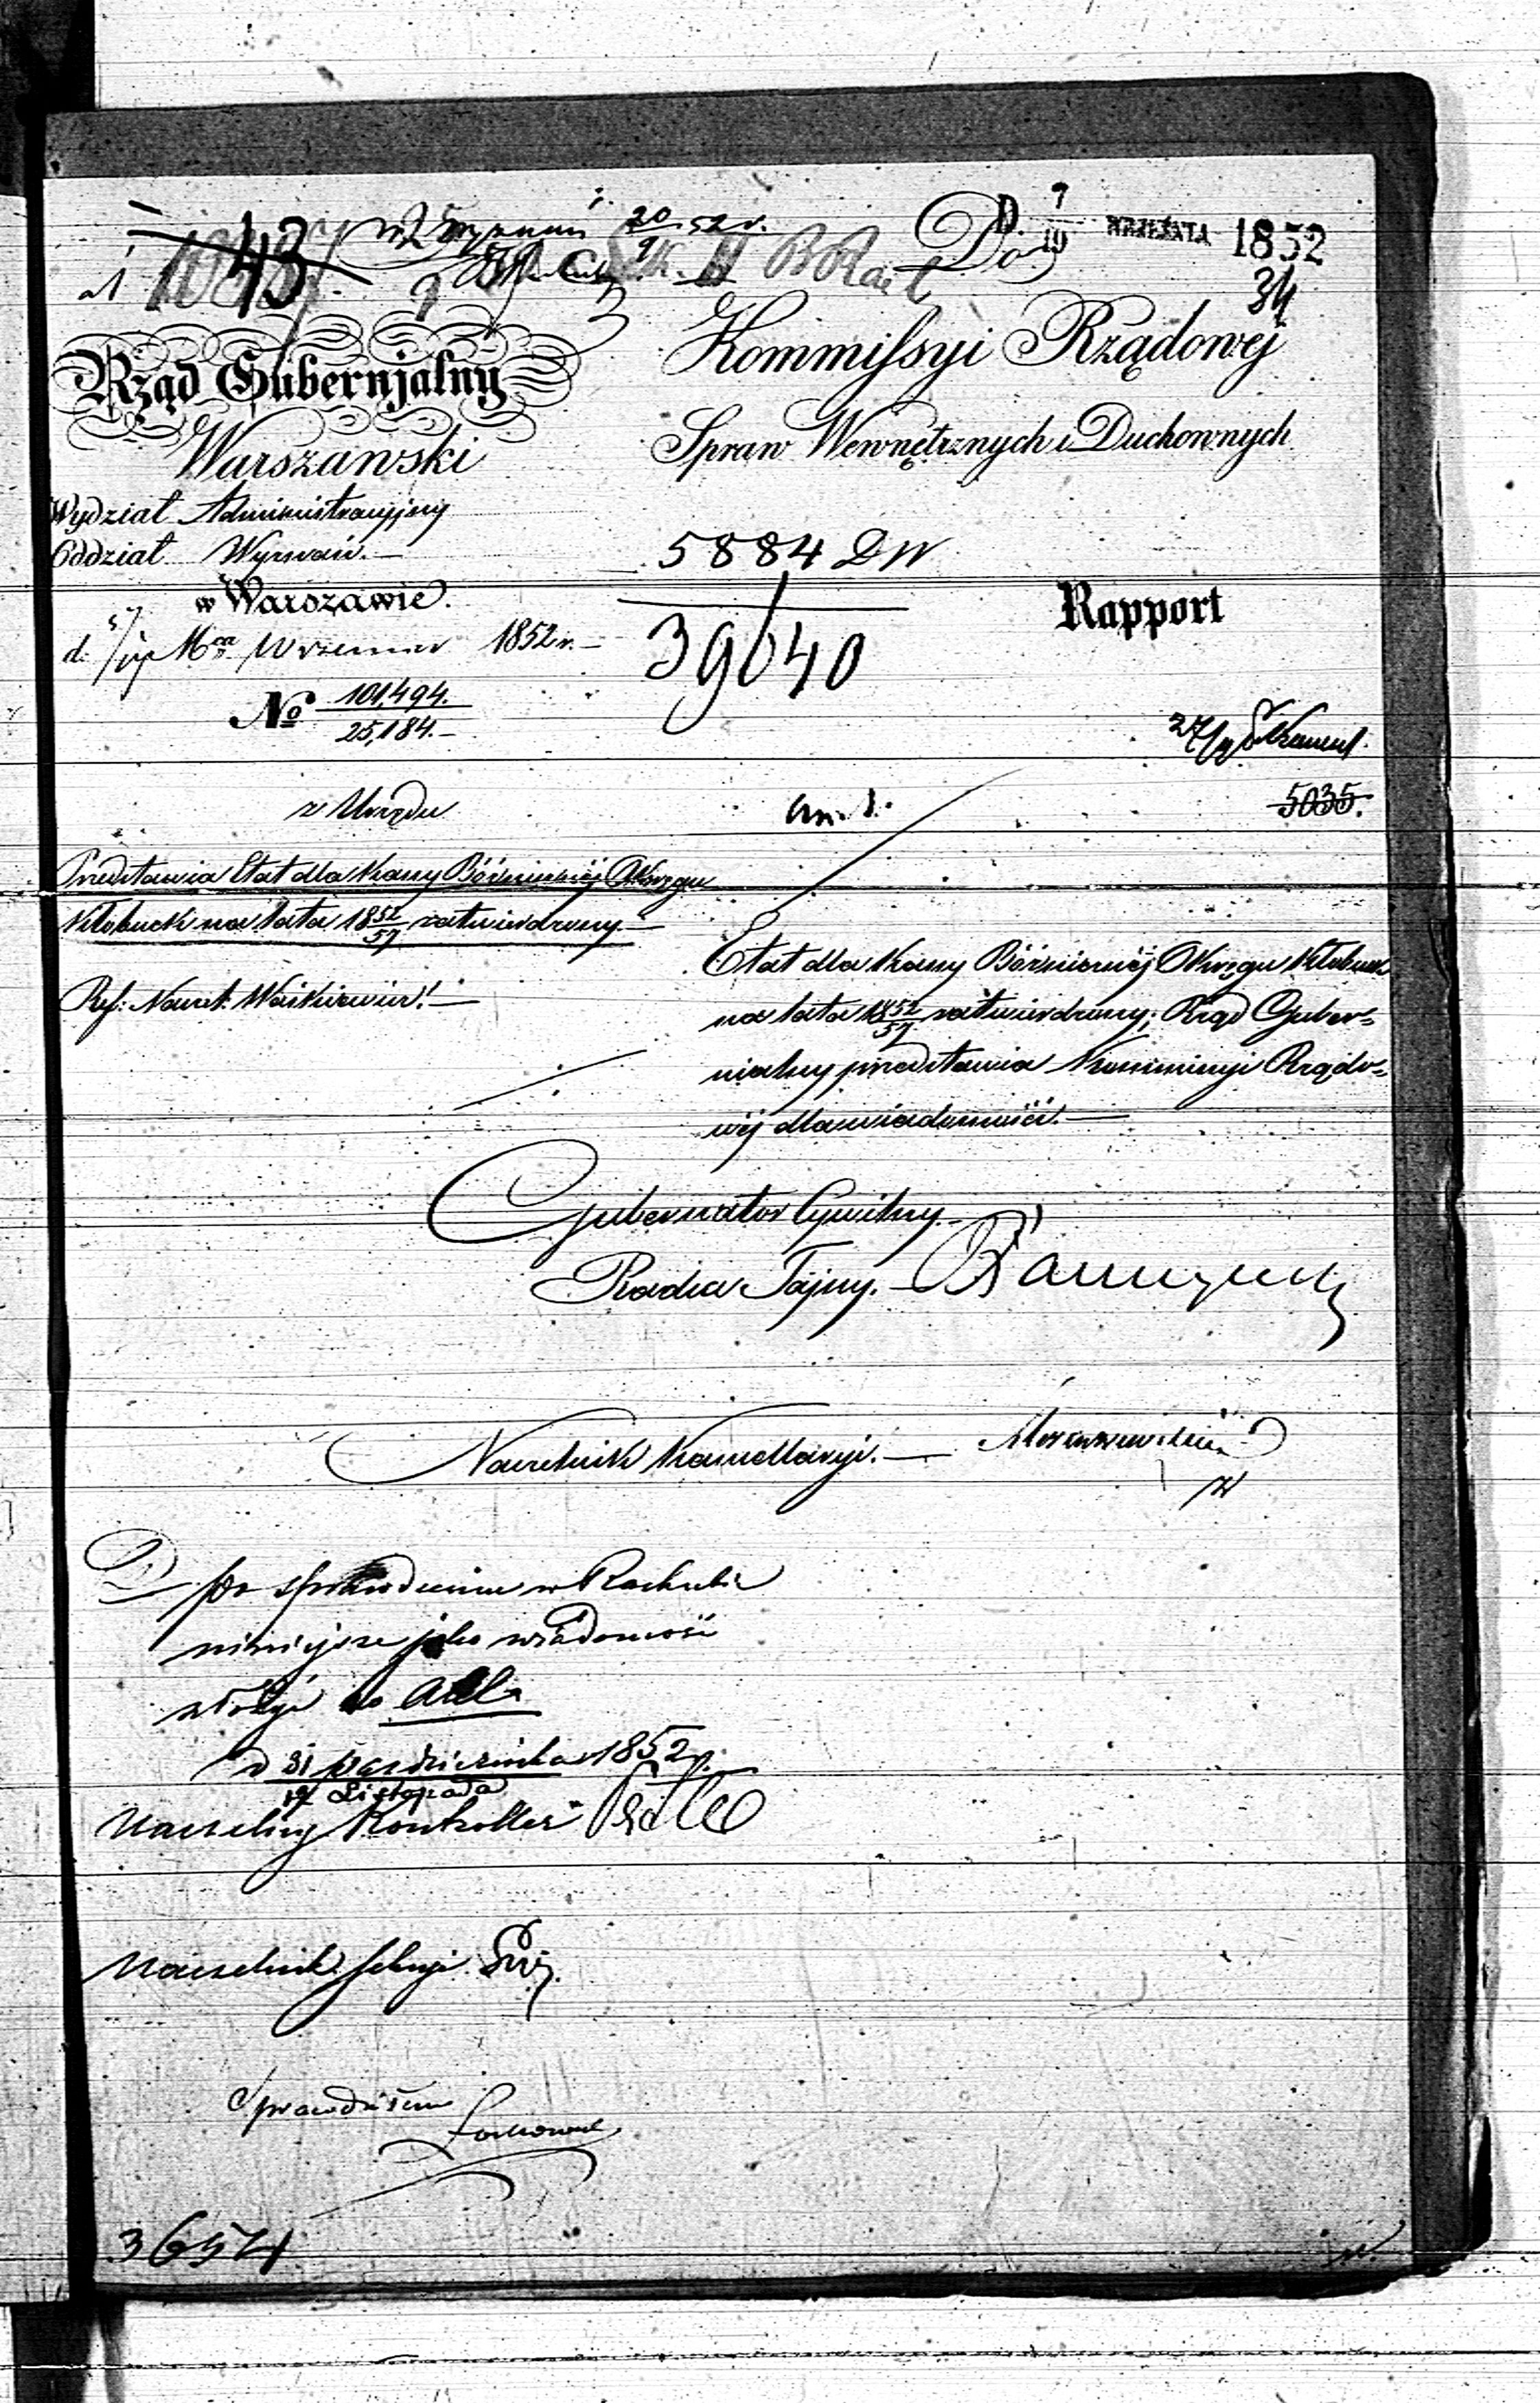 43
20/9 52 r.
D. 7/19 WRZEŚNIA 1852
Do
34
Rząd Gubernjalny
Warszawski
Wydział Administracyjny
Oddział Wyznań.
w Warszawie.
d. 5/17 Mca Września 1852 r.
No 101,494. / 25,184.
z Urzędu
Przedstawia Etat dla Kassy Bóżniczéj Okręgu
Kłobuck na lata 1852/57 zatwierdzony.
Ref: Naczel: Waśkiewicz.
Kommissyi Rządowéj
Spraw Wewnętrznych i Duchownych
5884 DW
39640
Rapport
27/9
5035.
Etat dla Kassy Bóżniczéj Okręgu Kłobuck
na lata 1852/57 zatwierdzony; Rząd Guber=
nialny przedstawia Kommissyi Rządo=
wéj dla wiadomości.
Gubernator Cywilny
Radca Tajny.
Naczelnik Kancellaryi.
po sprawdzeniu w Rachubie
niniejsze jako wiadomość
złożyć do Akt
d 31 Października 1852 r.
12 Listopada
Naczelny Kontroller
Naczelnik Sekcyi
Sprawdziłem
3654